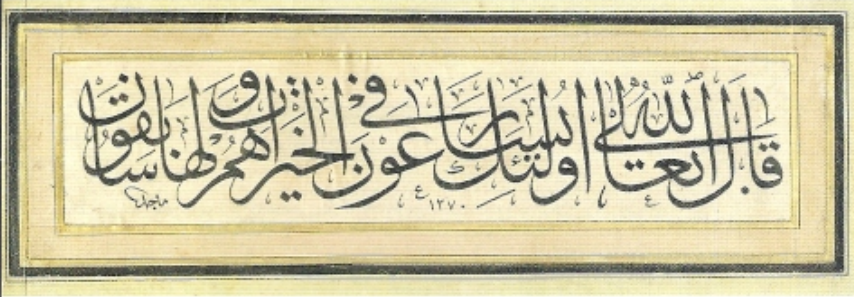 قال الله تعالى اولئك يسارعون في الخيرات وهم لها سابقون
ماجد
١٣٧٠